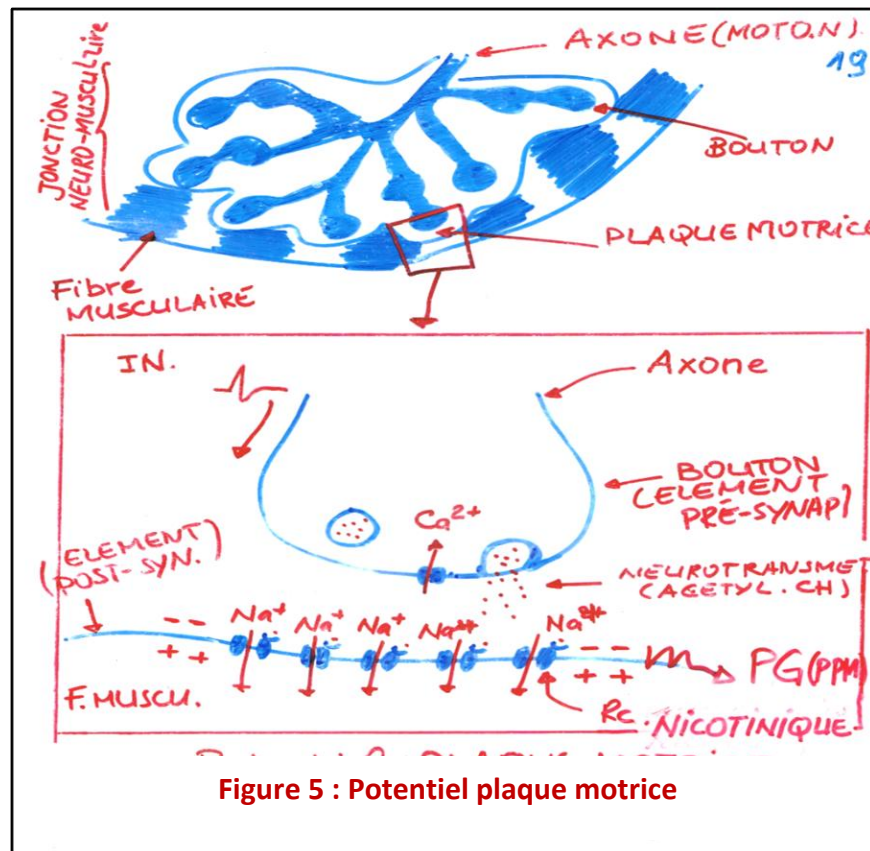 AXONE (MOTO.N).
19
JONCTION
NEURO-MUSCULAIRE
BOUTON
PLAQUE MOTRICE
Fibre
MUSCULAIRE
IN.
Axone
BOUTON
(ELEMENT
PRÉ-SYNAP)
Ca²⁺
(ELEMENT
POST-SYN.)
NEUROTRANSMET
(ACETYL.CH)
Na⁺ Na⁺ Na⁺
-- --
++ ++
F.MUSCU.
PG(PPM)
Rc. NICOTINIQUE
Figure 5 : Potentiel plaque motrice